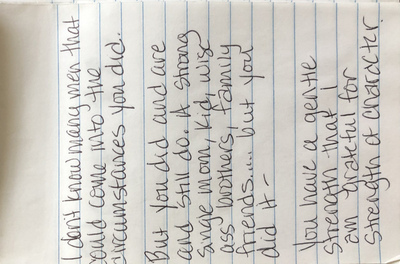 I don't know many men that
could come into the
circumstances you did.
But you did and are
and still do. A strong
single mom, kid, wise
ass brothers, family
friends.... but you
did it -
You have a gentle
strength that I
am grateful for
strength of character.